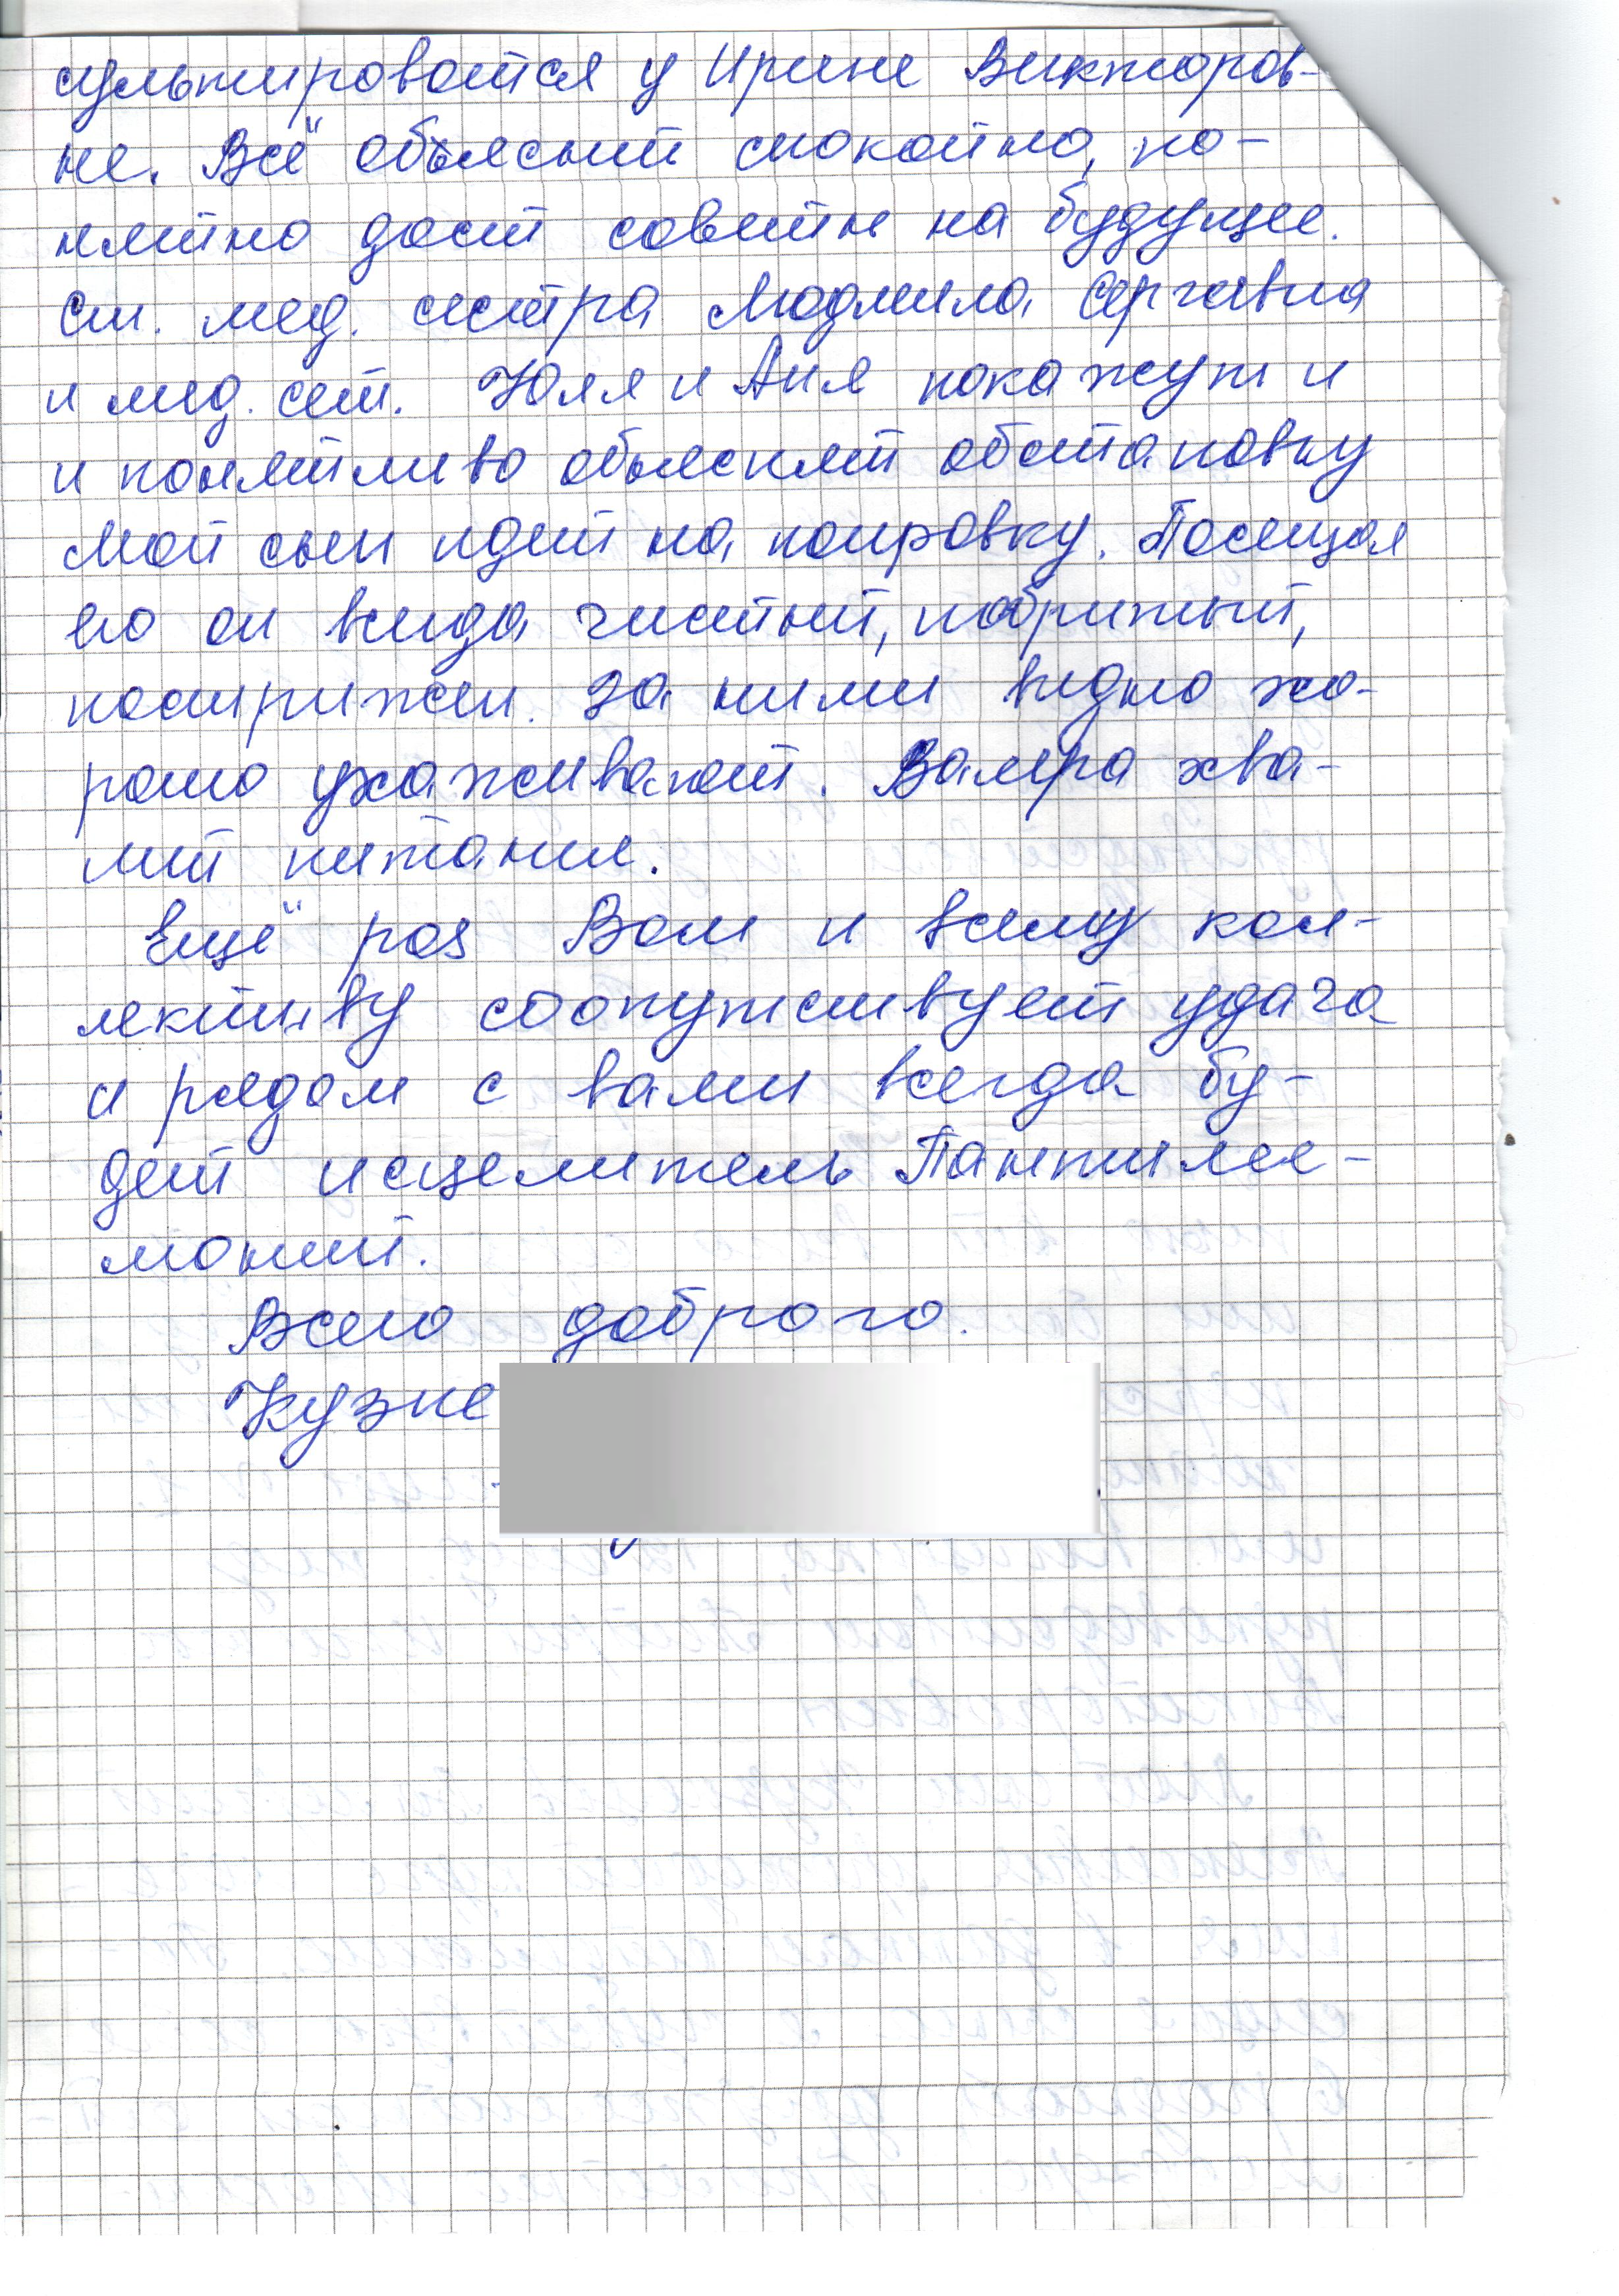 сультироватся у Ирине Викторов-
не. Всё объяснит спокойно, по-
нятно даст советы на будущее.
Ст. мед. сестра Людмила Сергевна
и мед. сест. Юля и Аня покажут и
и понятливо объяснят обстановку
Мой сын идет на поправку. Посещая
его он всегда чистый, побритый,
пострижен. За ними видно хо-
рошо ухаживают. Валера хва-
лит питания.
Ещё раз Вам и всему кол-
лективу сопутствует удача
и рядом с вами всегда бу-
дет исцелитель Пантилее-
моний.
Всего доброго.
Кузне